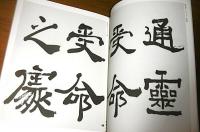 通靈
受命
受命
之